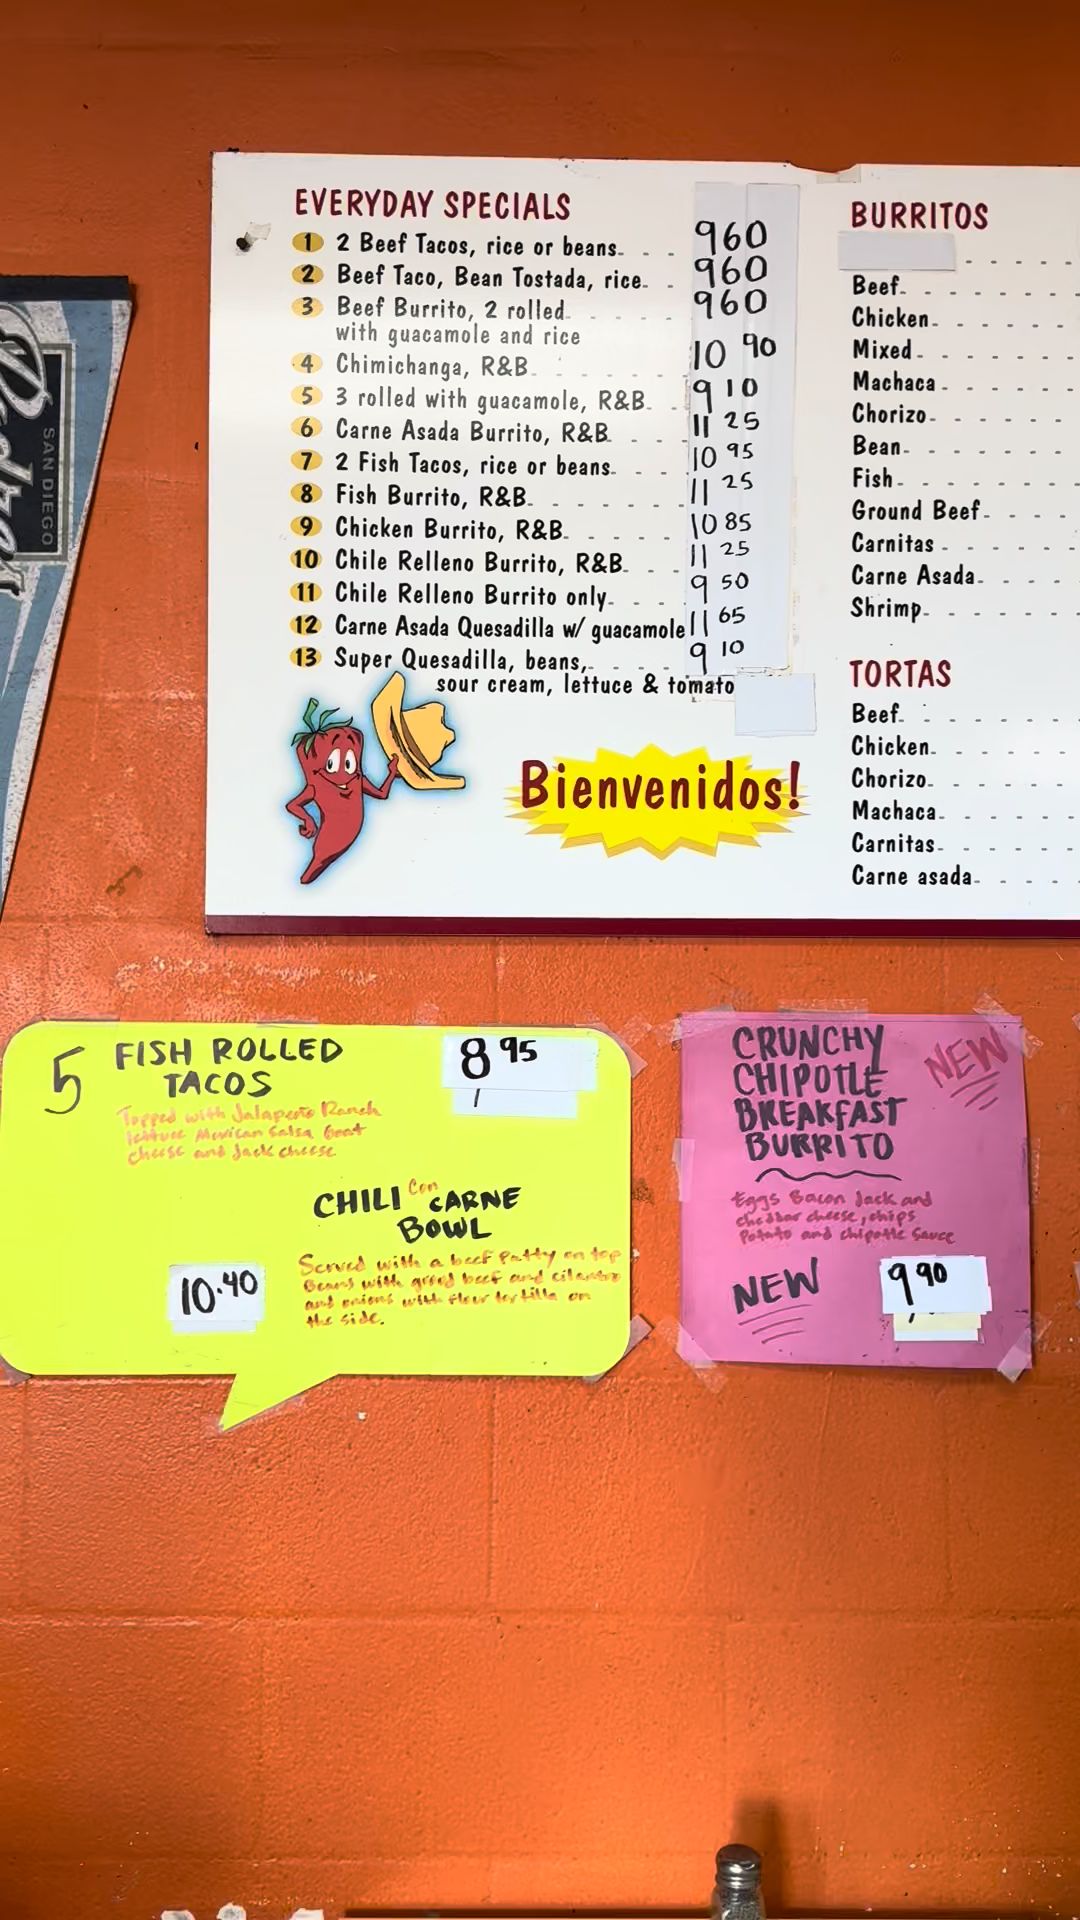 EVERYDAY SPECIALS
1 2 Beef Tacos, rice or beans 960
2 Beef Taco, Bean Tostada, rice 960
3 Beef Burrito, 2 rolled 960
with guacamole and rice
4 Chimichanga, R&B 10 90
5 3 rolled with guacamole, R&B 9 10
6 Carne Asada Burrito, R&B 11 25
7 2 Fish Tacos, rice or beans 10 95
8 Fish Burrito, R&B 11 25
9 Chicken Burrito, R&B 10 85
10 Chile Relleno Burrito, R&B 11 25
11 Chile Relleno Burrito only 9 50
12 Carne Asada Quesadilla w/ guacamole 11 65
13 Super Quesadilla, beans, 9 10
sour cream, lettuce & tomato
Bienvenidos!
BURRITOS
Beef
Chicken
Mixed
Machaca
Chorizo
Bean
Fish
Ground Beef
Carnitas
Carne Asada
Shrimp
TORTAS
Beef
Chicken
Chorizo
Machaca
Carnitas
Carne asada
SAN DIEGO
5 FISH ROLLED 8 95
TACOS
Topped with Jalapeño Ranch
lettuce Mexican Salsa Goat
cheese and Jack cheese
CHILI Con CARNE
BOWL
10.40
Served with a beef Patty on top
Beans with grond beef and cilantro
and onions with flour tortilla on
the side.
CRUNCHY
CHIPOTLE
BREAKFAST
BURRITO
NEW
Eggs Bacon Jack and
cheddar cheese, chips
Potato and chipotle Sauce
NEW
9 90